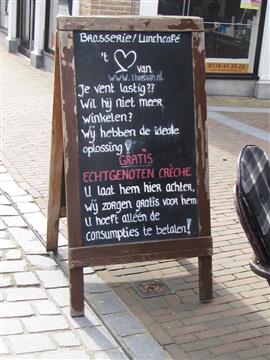 Brasserie/Lunchcafé
't ♡ van
www.thartvan.nl
Je vent lastig??
Wil hij niet meer
winkelen?
Wij hebben de ideale
oplossing!
GRATIS
ECHTGENOTEN CRÈCHE
U laat hem hier achter,
wij zorgen gratis voor hem
U hoeft alléén de
consumpties te betalen!